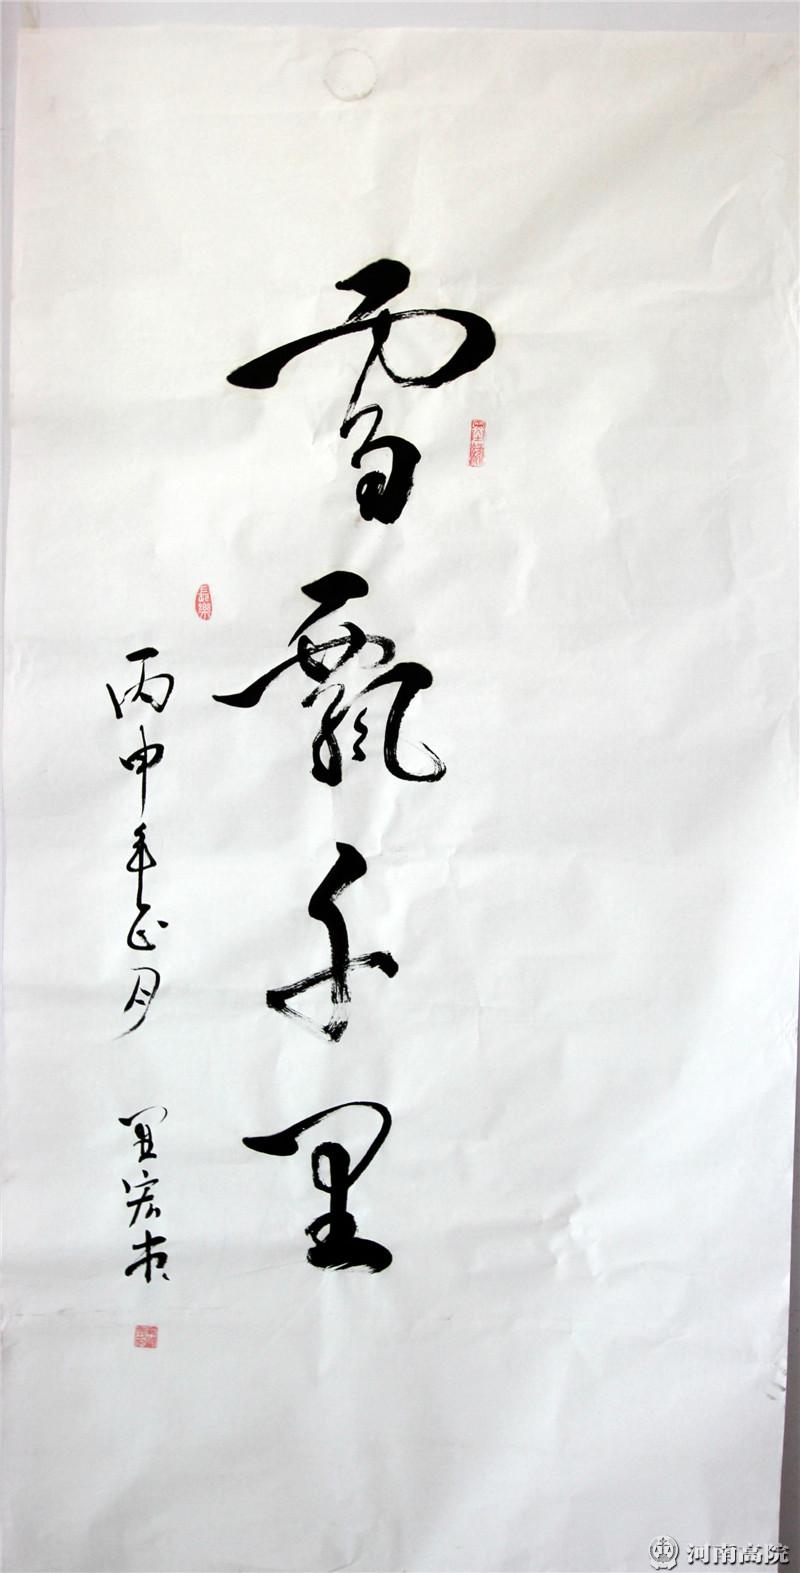 雪飘千里
丙申年正月
宏
长乐
河南高院